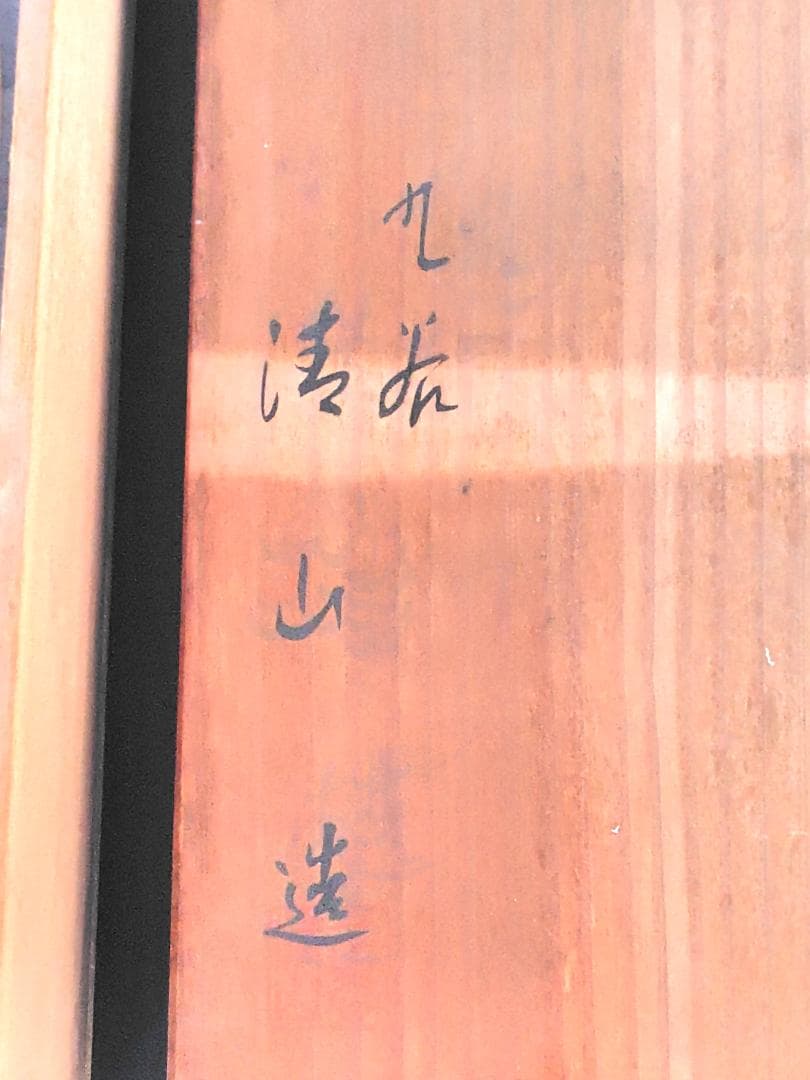 九谷
清山造